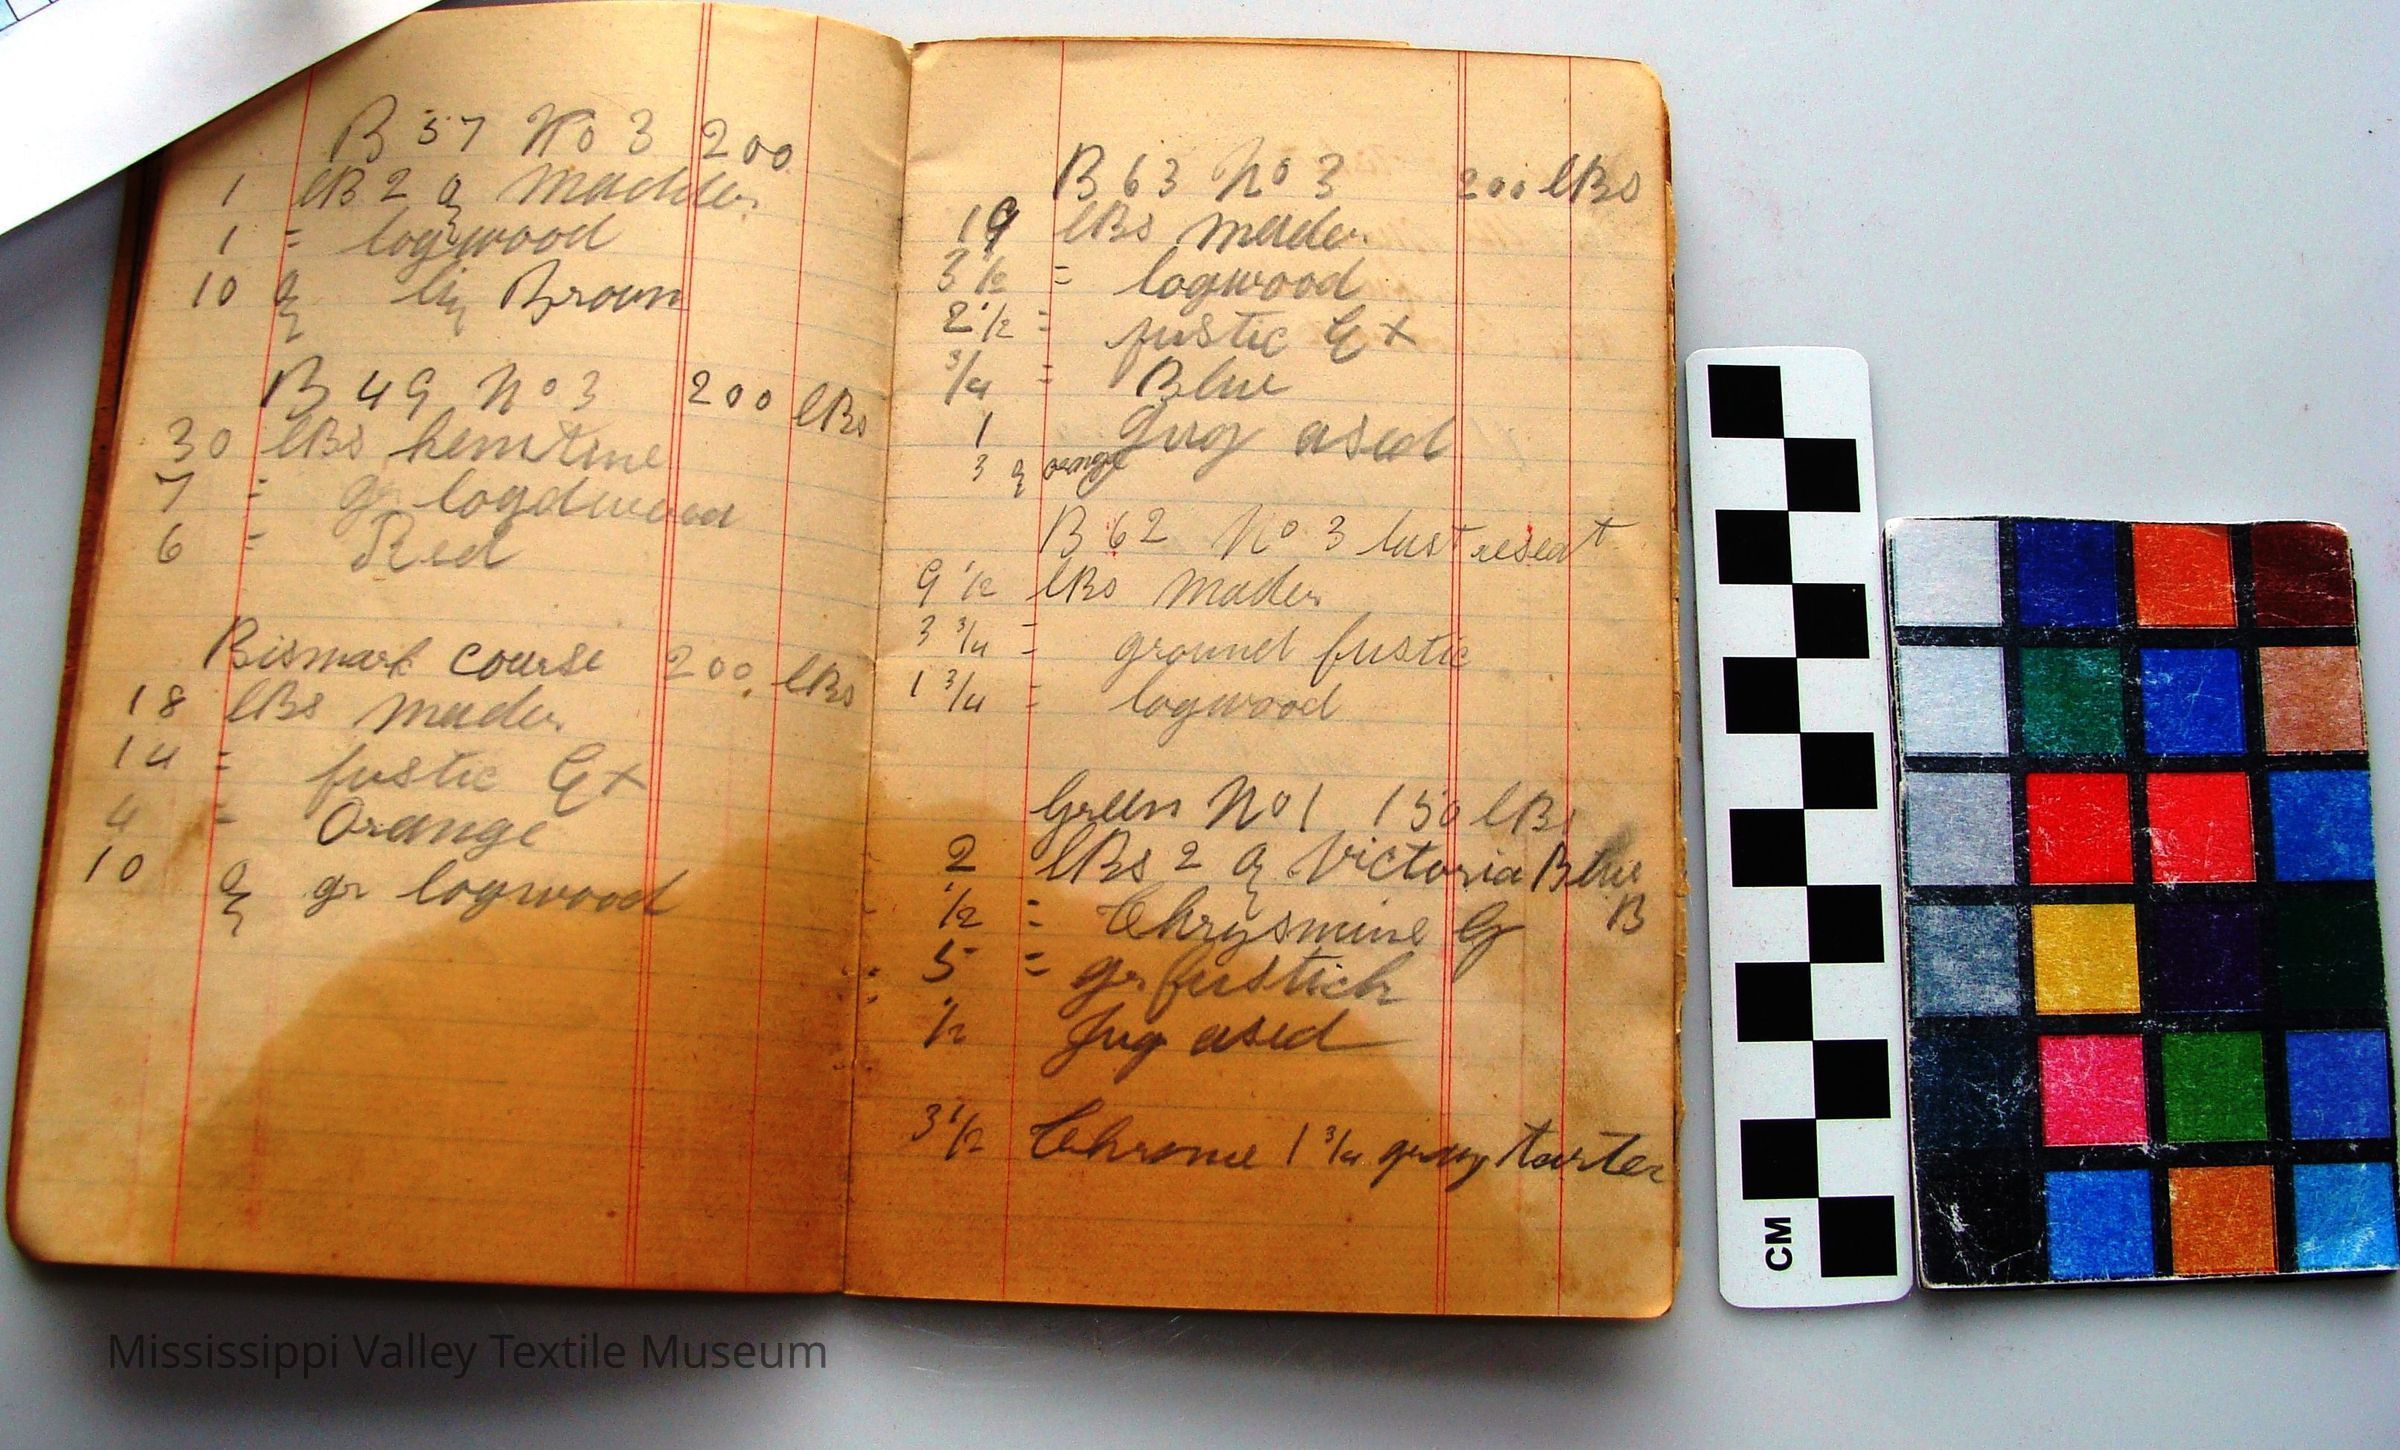 B 57 No 3 200
1 lBs 2 oz Madder
1 = logwood
10 oz lig Brown
B 49 No 3 200 lBs
30 lBs hemtine
7 = gr logdwood
6 = Red
Bismark course 200 lBs
18 lBs mader
14 = fustic Ex
4 = Orange
10 oz gr logwood
B 63 No 3 200 lBs
19 lBs mader
3 1/2 = logwood
2 1/2 = fustic Ex
3/4 = Blue
1 Jug ased
3 oz orange
B 62 No 3 lust
9 1/2 lBs Mader
3 3/4 = ground fustic
1 3/4 = logwood
Green No 1 150 lBs
2 lBs 2 oz Victoria Blue
B
1/2 = Chrysmine G
5 = gr fustick
1/2 Jug ased
3 1/2 Chrome 1 3/4 gray tarter
CM
Mississippi Valley Textile Museum